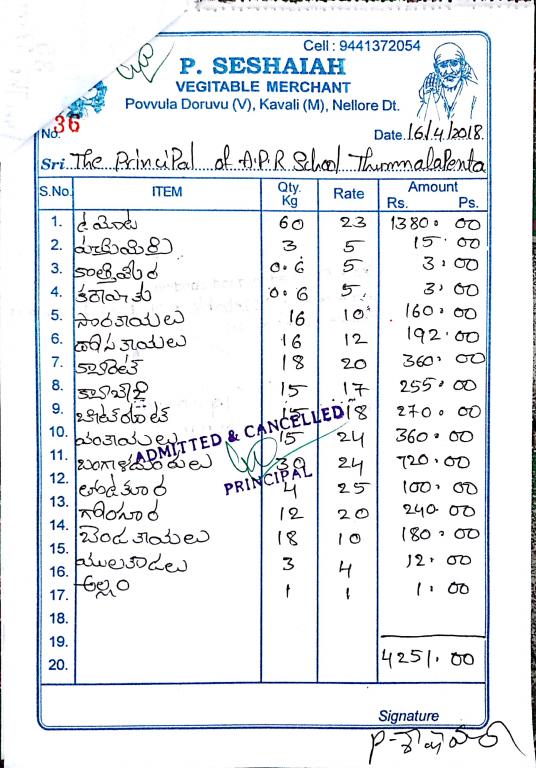 Cell : 9441372054
P. SESHAIAH
VEGITABLE MERCHANT
Povvula Doruvu (V), Kavali (M), Nellore Dt.
No. 36 Date. 16/4/2018
Sri. The Principal of A.P.R School Thummalapenta
S.No. ITEM Qty. Kg Rate Amount Rs. Ps.
1. టమోట 60 23 1380.00
2. 3 5 15.00
3. కొత్తిమీర 0.6 5 3.00
4. కరేపాకు 0.6 5 3.00
5. సొరకాయలు 16 10 160.00
6. దోసకాయలు 16 12 192.00
7. క్యారెట్ 18 20 360.00
8. క్యాబేజి 15 17 255.00
9. బీట్‌రూట్ 15 18 270.00
10. వంకాయలు 15 24 360.00
11. 30 24 720.00
12. 4 25 100.00
13. గోంగూర 12 20 240.00
14. బెండకాయలు 18 10 180.00
15. ములకాడలు 3 4 12.00
16. అల్లం 1 1 1.00
17.
18.
19.
20. 4251.00
ADMITTED & CANCELLED
PRINCIPAL
Signature